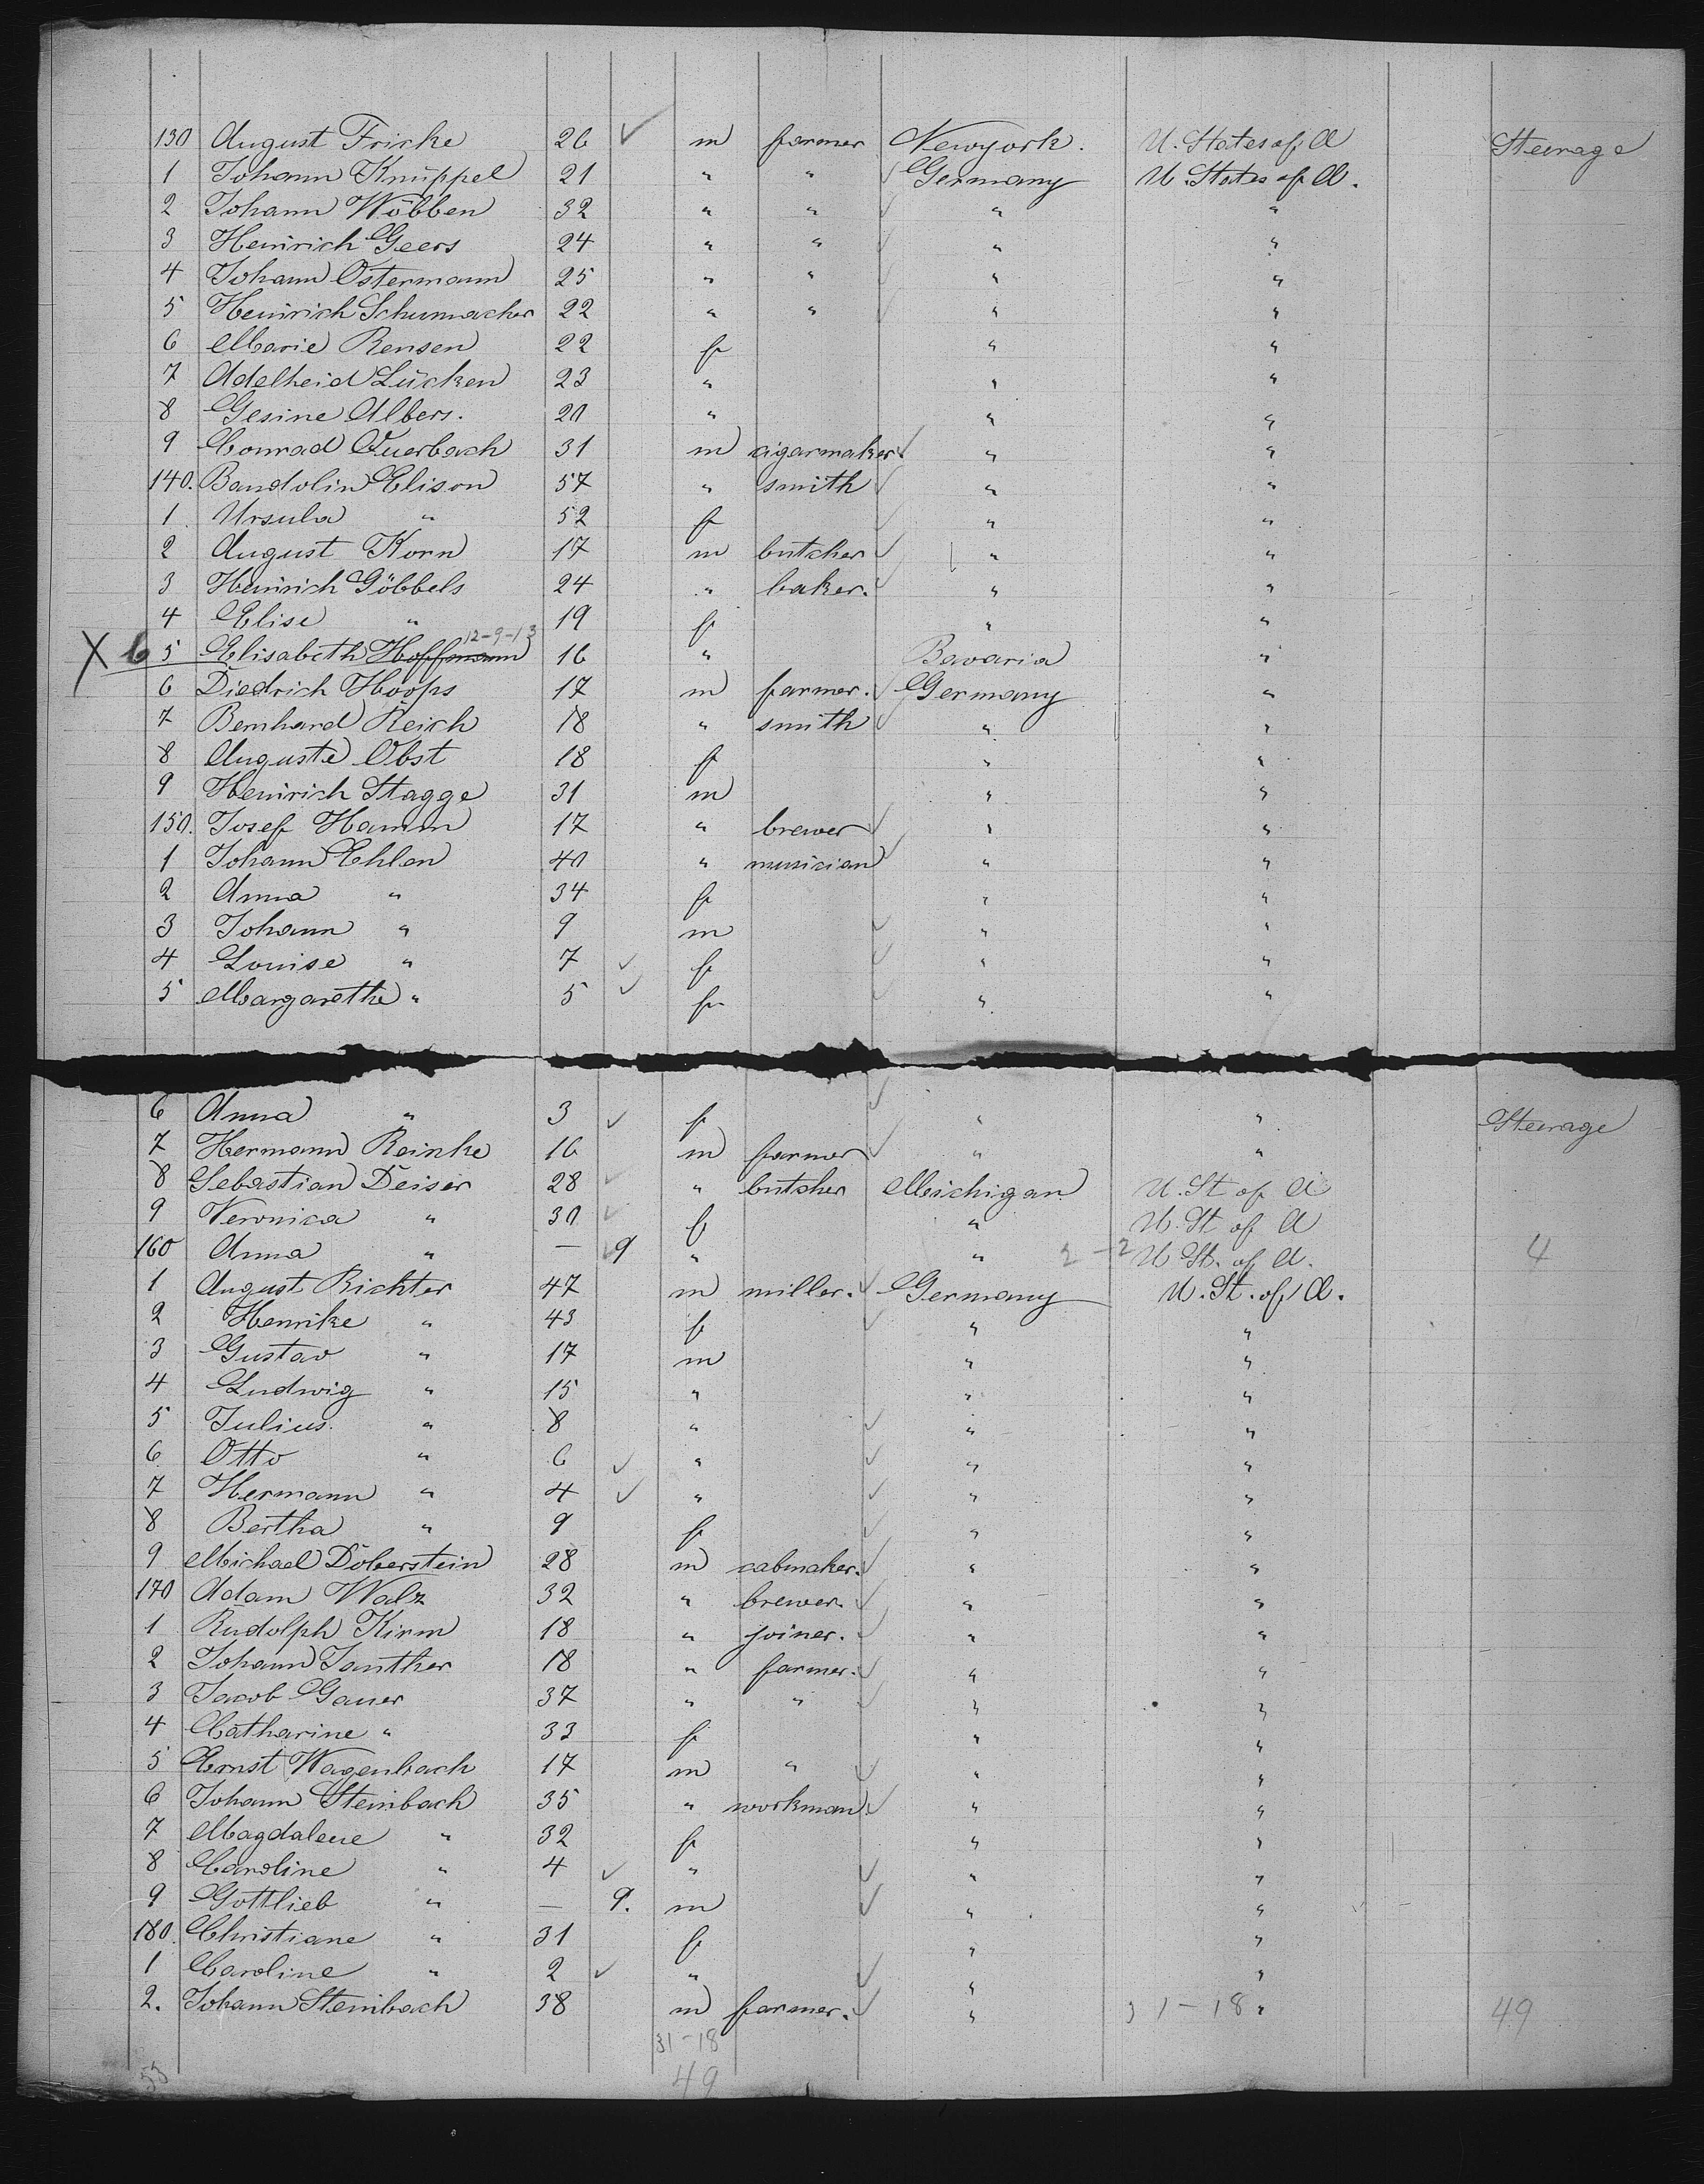 130 August Fricke 26 ✓ m farmer Newyork. U. States of A Steerage
1 Johann Knüppel 21 " " ✓ Germany U. States of A.
2 Johann Wöbben 32 " " ✓ " "
3 Heinrich Geers 24 " " ✓ " "
4 Johann Ostermann 25 " " ✓ " "
5 Heinrich Schumacher 22 " " ✓ " "
6 Marie Rensen 22 f " "
7 Adelheid Lücken 23 " " "
8 Gesine Albers. 20 " " "
9 Conrad Querbach 31 m cigarmaker. ✓ " "
140. Bandolin Elison 57 " smith ✓ " "
1 Ursula " 52 f ✓ " "
2 August Korn 17 m butcher ✓ " "
3 Heinrich Göbbels 24 " baker. ✓ " "
4 Elise " 19 f " "
12-9-13
X 6 5 Elisabeth Hoffmann 16 " Bavaria "
6 Diedrich Hoops 17 m farmer. ✓ Germany "
7 Bernhard Reich 18 " smith ✓ " "
8 Auguste Obst 18 f " "
9 Heinrich Stagge 31 m " "
150. Josef Hamm 17 " brewer ✓ " "
1 Johann Ehlen 40 " musician ✓ " "
2 Anna " 34 f " "
3 Johann " 9 m ✓ " "
4 Louise " 7 ✓ f ✓ " "
5 Margarethe " 5 ✓ f ✓ " "
6 Anna " 3 ✓ f ✓ " " Steerage
7 Hermann Reinke 16 m farmer ✓ " "
8 Sebastian Deiser 28 ✓ " butcher Michigan U. St of A
9 Veronica " 30 ✓ f " U. St of A
160 Anna " — ✓ 9 " " 2-2 U St. of A. 4
1 August Richter 47 m miller. ✓ Germany U. St. of A.
2 Henrike " 43 f ✓ " "
3 Gustav " 17 m " "
4 Ludwig " 15 " " "
5 Julius " 8 " ✓ " "
6 Otto " 6 ✓ " ✓ " "
7 Hermann " 4 ✓ " ✓ " "
8 Bertha " 9 f ✓ " "
9 Michael Doberstein 28 m cabmaker. ✓ " "
170 Adam Walz 32 " brewer. ✓ " "
1 Rudolph Kirm 18 " joiner. ✓ " "
2 Johann Janther 18 " farmer. ✓ " "
3 Jacob Gauer 37 " " ✓ " "
4 Catharine " 33 f " "
5 Ernst Wagenbach 17 m " ✓ " "
6 Johann Steinbach 35 " workman. ✓ " "
7 Magdalene " 32 f " "
8 Caroline " 4 ✓ " ✓ " "
9 Gottlieb " — 9. m ✓ " "
180. Christiane " 31 f " "
1 Caroline " 2 ✓ " ✓ " "
2. Johann Steinbach 38 m farmer. ✓ " 31-18 " 49
31-18
53 49